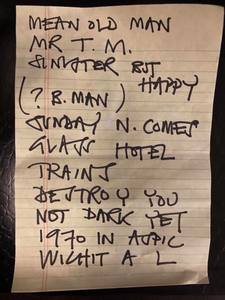 MEAN OLD MAN
MR T. M.
SINISTER BUT
HAPPY
(? B. MAN)
SUNDAY N. COMES
GLASS HOTEL
TRAINS
DESTROY YOU
NOT DARK YET
1970 IN ASPIC
WICHITA L